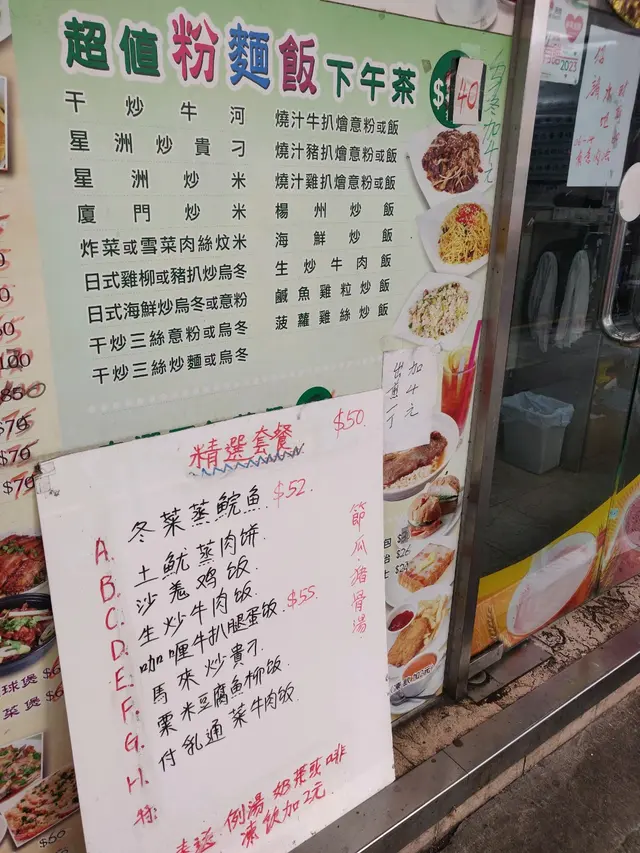 超值粉麵飯下午茶 40
干炒牛河
星洲炒貴刁
星洲炒米
廈門炒米
炸菜或雪菜肉絲炆米
日式雞柳或豬扒炒烏冬
日式海鮮炒烏冬或意粉
干炒三絲意粉或烏冬
干炒三絲炒麵或烏冬
燒汁牛扒燴意粉或飯
燒汁豬扒燴意粉或飯
燒汁雞扒燴意粉或飯
楊州炒飯
海鮮炒飯
生炒牛肉飯
鹹魚雞粒炒飯
菠蘿雞絲炒飯
出前一丁
加4元
精選套餐 $50.
A. 冬菜蒸鯇魚 $52.
B. 土魷蒸肉饼.
C. 沙卷鸡饭.
D. 生炒牛肉饭.
E. 咖喱牛扒腿蛋饭. $55.
F. 馬來炒貴刁.
G. 粟米豆腐魚柳饭.
H. 付乳通菜牛肉饭
節瓜豬骨湯
例湯 奶茶或啡
凍飲加2元
球煲 $6
菜煲 $6
$60
100
$70
$70
$70
2023